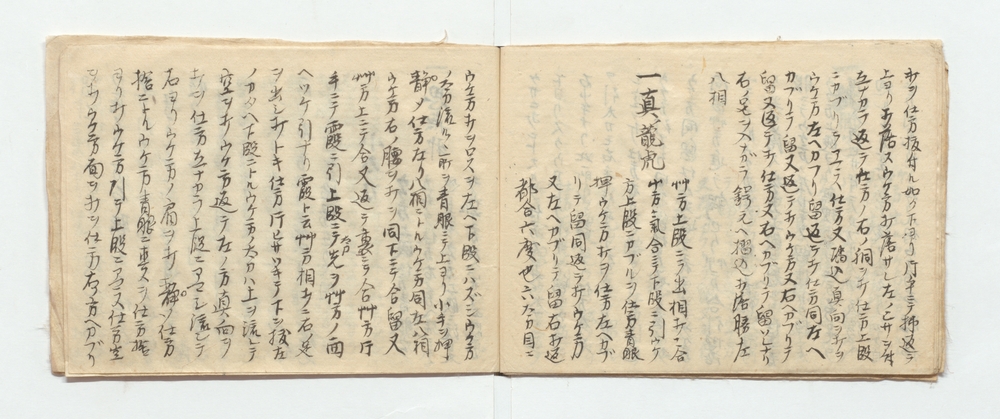 ヲヲ仕方抜付ル如ク下ヨリ片手ニテ拂返シテ
上ヨリ打落スウケ方打落サレ左ヒサヲ付
左ナカラ返シテ仕方ノ右ノ胴ヲ打仕方上段
ニカブリテ
ウケ方左ヘカブリ留返シテ打仕方同左ヘ
カブリテ留又返シテ打ウケ方又右カブリテ
留又返シテ打仕方又右ヘカブリテ留ソレヨリ
右ノ足ヲ入ナガラ鍔元ヘ摺込ミ打落勝左
八相
一真龍虎
双方上段ニテ出相打ニ合
双方氣合ニテ下段ニ引ウケ
方上段ニカブルヲ仕方青眼
押ウケ方打ヲ仕方左ヘカブ
リテ留同返シテ打ウケ方
又左ヘカブリテ留右打返
都合六度也六ツ方目ニ
ウケ方打ヲロスヲ左ヘ下段ニハズシウケ方
ノ太刀流ルヽ所ヲ青眼ニテ上ヨリ小手ヲ押
静ノ仕方左ヨリ八相ニトルウケ方同左八相
ウケ方右ノ腰ヲ打ヲ同下ニテ合留又
双方上ニテ合又返シテ裏ニテ合双方片
手ニテ霞ニ引上段ニテ太刀先ヲ双方ノ面
ヘツケ引ナリ霞ト云双方相打ニ右足
ヲ出シ打トキ仕方片ヒサツキテ下ヲ抜左
ノカタヘ下段ニトルウケ方ノ太刀ハ上ヲ流レテ
空ヲ打ウケ方返シテ左ノ方真向ヲ
打ヲ仕方左ナカラ上段ニアマシ流シテ
右ヨリウケ方ノ肩ヲ打静ソ仕方
捨ニトルウケ方青眼ニ
ヨリ打ウケ方引テ上段ニアマス仕方空
ヲ打ウケ方面ヲ打ヲ仕方右ノ方ヘカブリ